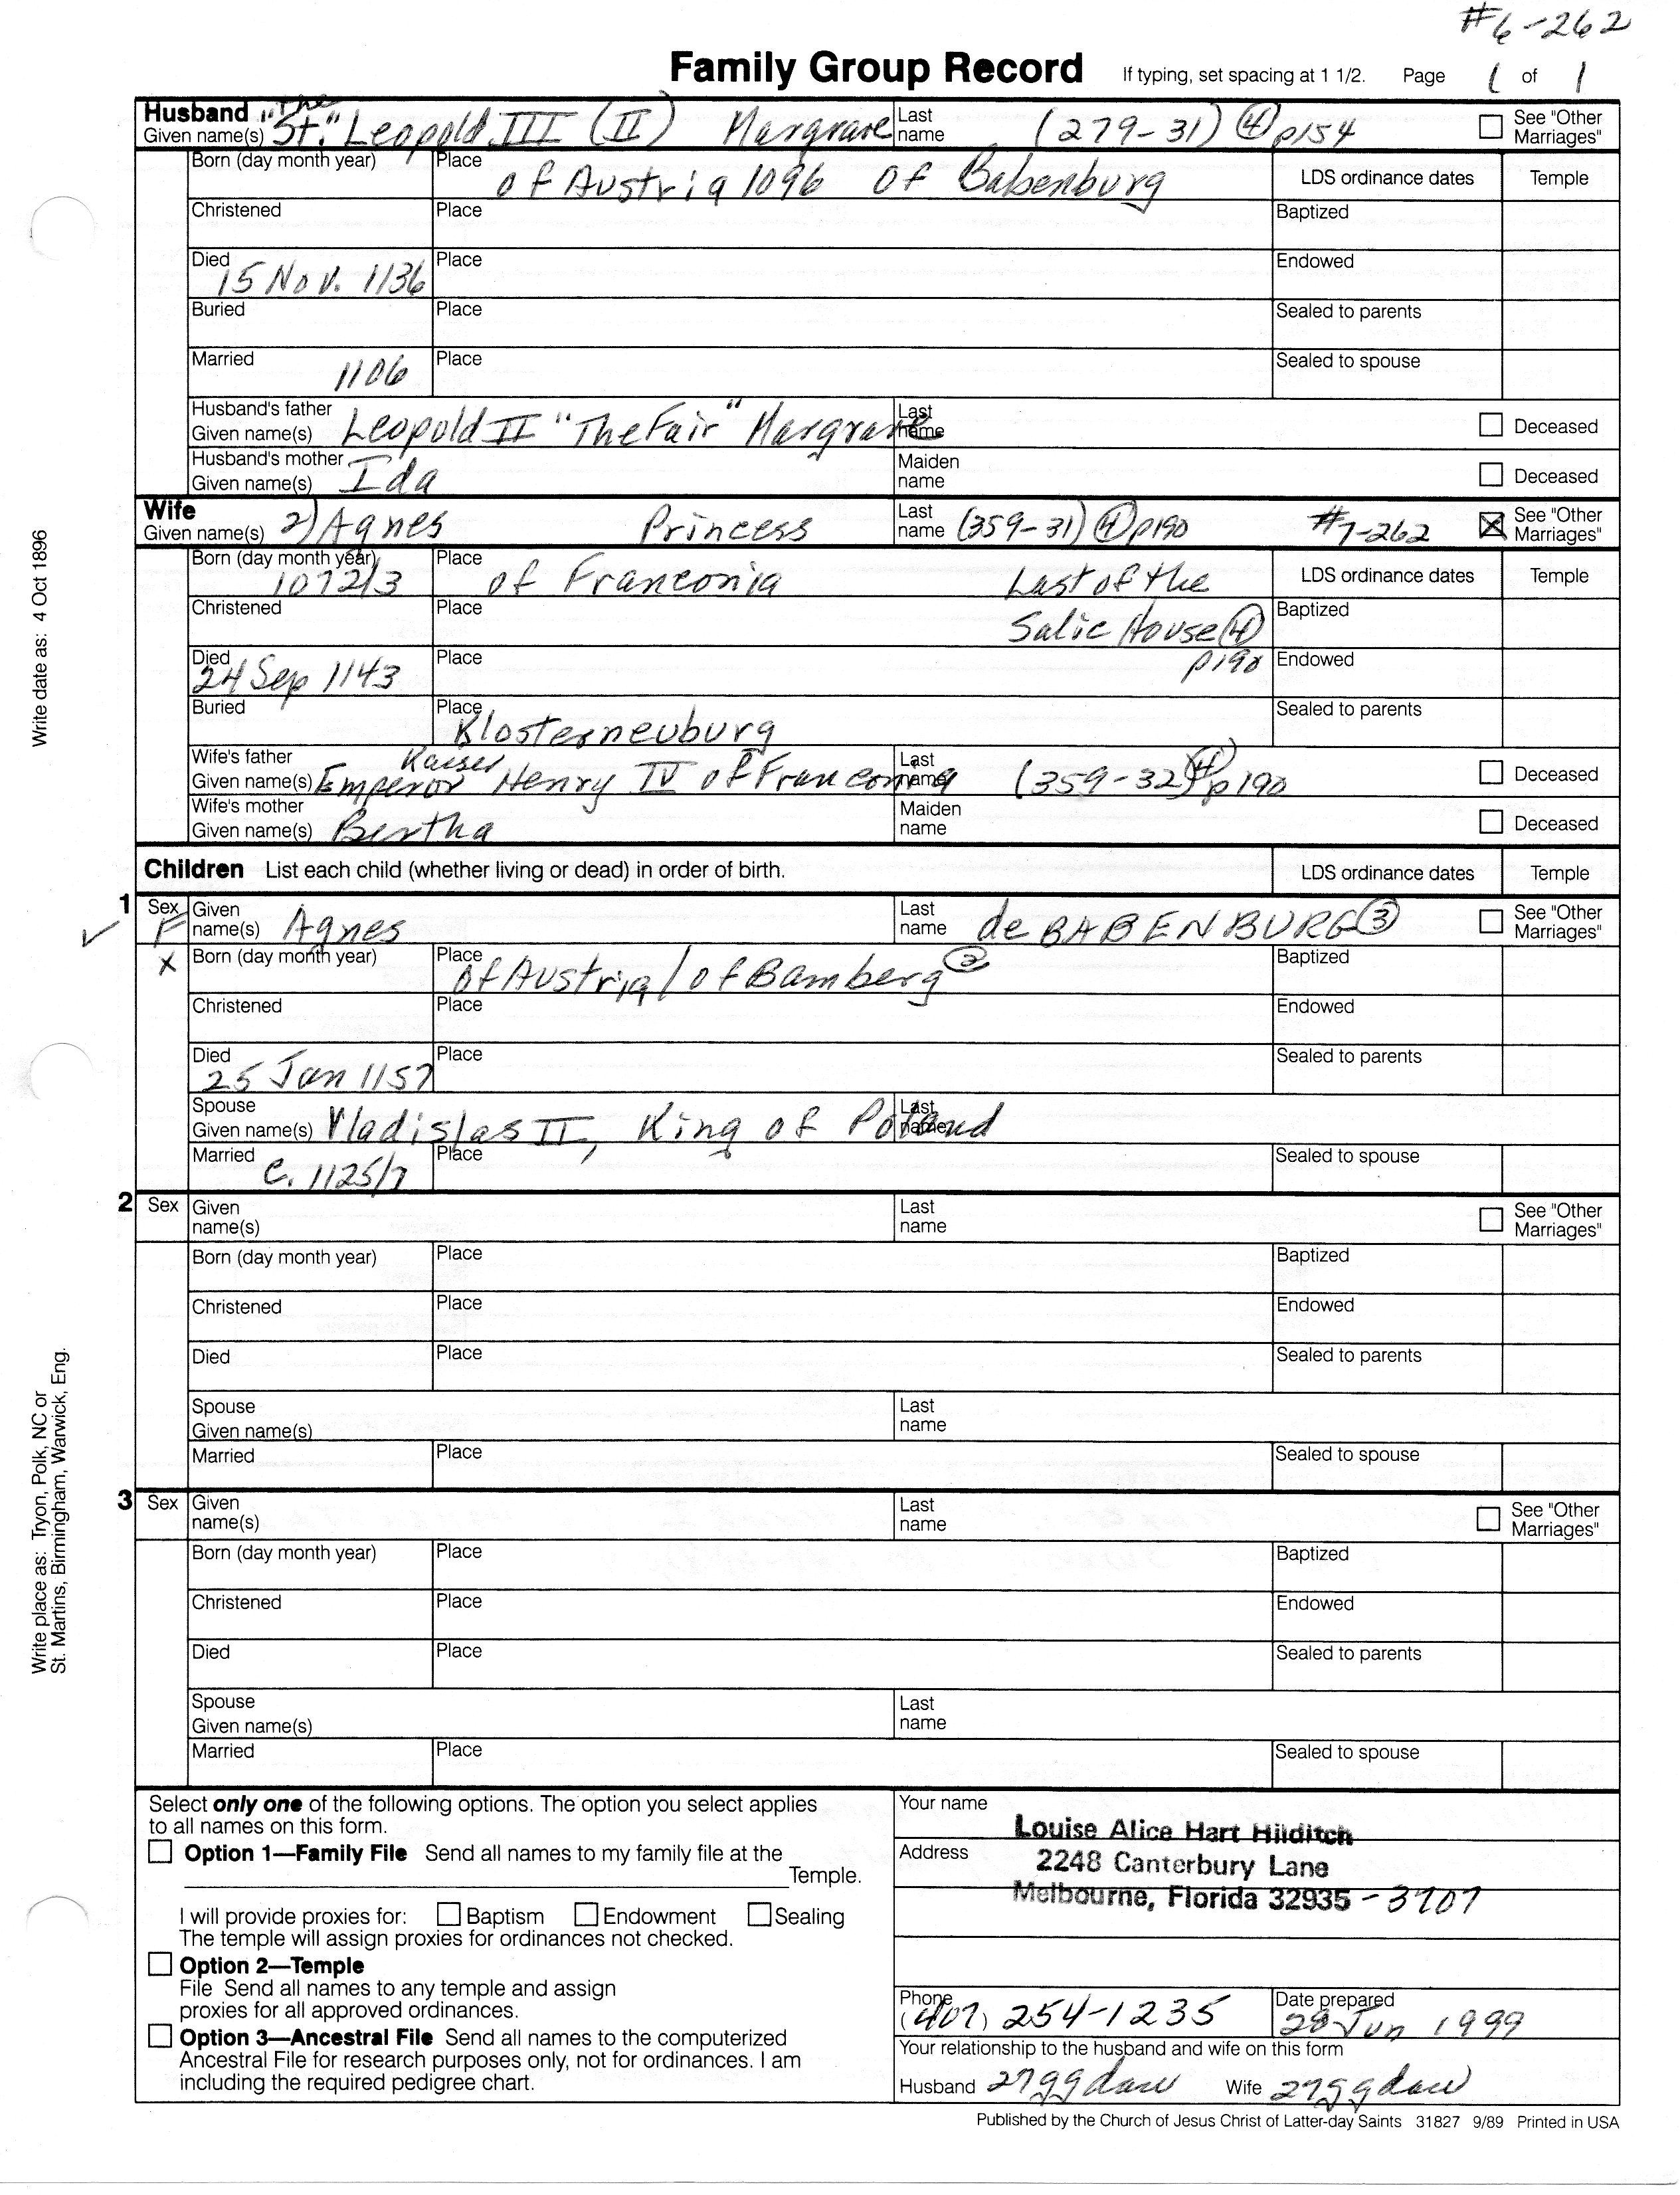 #6-262
Family Group Record If typing, set spacing at 1 1/2. Page 1 of 1
Husband
Given name(s) "The St." Leopold III (II) Margrave Last name (279-31) ④ p154 See "Other Marriages"
Born (day month year) Place of Austria 1096 of Babenburg LDS ordinance dates Temple
Christened Place Baptized
Died 15 Nov. 1136 Place Endowed
Buried Place Sealed to parents
Married 1106 Place Sealed to spouse
Husband's father Given name(s) Leopold II "The Fair" Margrave Last name Deceased
Husband's mother Given name(s) Ida Maiden name Deceased
Wife
Given name(s) 2) Agnes Princess Last name (359-31) ④ p190 #7-262 See "Other Marriages"
Born (day month year) 1072/3 Place of Franconia Last of the LDS ordinance dates Temple
Christened Place Salic House ④ Baptized
Died 24 Sep 1143 Place p190 Endowed
Buried Place Klosterneuburg Sealed to parents
Wife's father Given name(s) Kaiser Emperor Henry IV of Franconia Last name (359-32) ④ p190 Deceased
Wife's mother Given name(s) Bertha Maiden name Deceased
Children List each child (whether living or dead) in order of birth. LDS ordinance dates Temple
1 Sex F Given name(s) Agnes Last name de BABENBURG ③ See "Other Marriages"
X Born (day month year) Place of Austria/of Bamberg ② Baptized
Christened Place Endowed
Died 25 Jan 1157 Place Sealed to parents
Spouse Given name(s) Vladislas II, King of Poland Last name
Married c. 1125/7 Place Sealed to spouse
2 Sex Given name(s) Last name See "Other Marriages"
Born (day month year) Place Baptized
Christened Place Endowed
Died Place Sealed to parents
Spouse Given name(s) Last name
Married Place Sealed to spouse
3 Sex Given name(s) Last name See "Other Marriages"
Born (day month year) Place Baptized
Christened Place Endowed
Died Place Sealed to parents
Spouse Given name(s) Last name
Married Place Sealed to spouse
Select only one of the following options. The option you select applies
to all names on this form.
Option 1—Family File Send all names to my family file at the
Temple.
I will provide proxies for: Baptism Endowment Sealing
The temple will assign proxies for ordinances not checked.
Option 2—Temple
File Send all names to any temple and assign
proxies for all approved ordinances.
Option 3—Ancestral File Send all names to the computerized
Ancestral File for research purposes only, not for ordinances. I am
including the required pedigree chart.
Your name Louise Alice Hart Hilditch
Address 2248 Canterbury Lane
Melbourne, Florida 32935-3707
Phone (407) 254-1235 Date prepared 28 Jun 1999
Your relationship to the husband and wife on this form
Husband 27ggdau Wife 27ggdau
Published by the Church of Jesus Christ of Latter-day Saints 31827 9/89 Printed in USA
Write date as: 4 Oct 1896
Write place as: Tryon, Polk, NC or
St. Martins, Birmingham, Warwick, Eng.